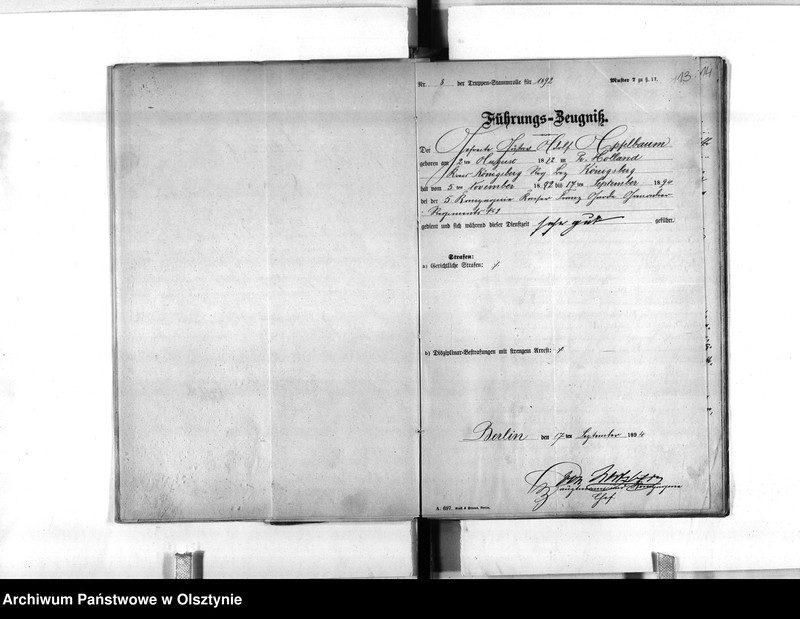 Nr. 8 der Truppen-Stammrolle für 1892 Muster 7 zu §. 17.
13 14
Führungs-Zeugniß.
Der Gefreite Gustav Adolf Appelbaum
geboren am 2ten August 1872 in Pr. Holland
Kreis Königsberg Reg Bez Königsberg
hat vom 5ten November 1892 bis 17ten September 1894
bei der 5 Kompagnie Kaiser Franz Garde Grenadier
Regiments №2
gedient und sich während dieser Dienstzeit sehr gut geführt.
Strafen:
a) Gerichtliche Strafen:
b) Disziplinar-Bestrafungen mit strengem Arrest:
Berlin den 17ten September 1894
von
Hauptmann und Kompagnie
Chef
A. 697.
Archiwum Państwowe w Olsztynie